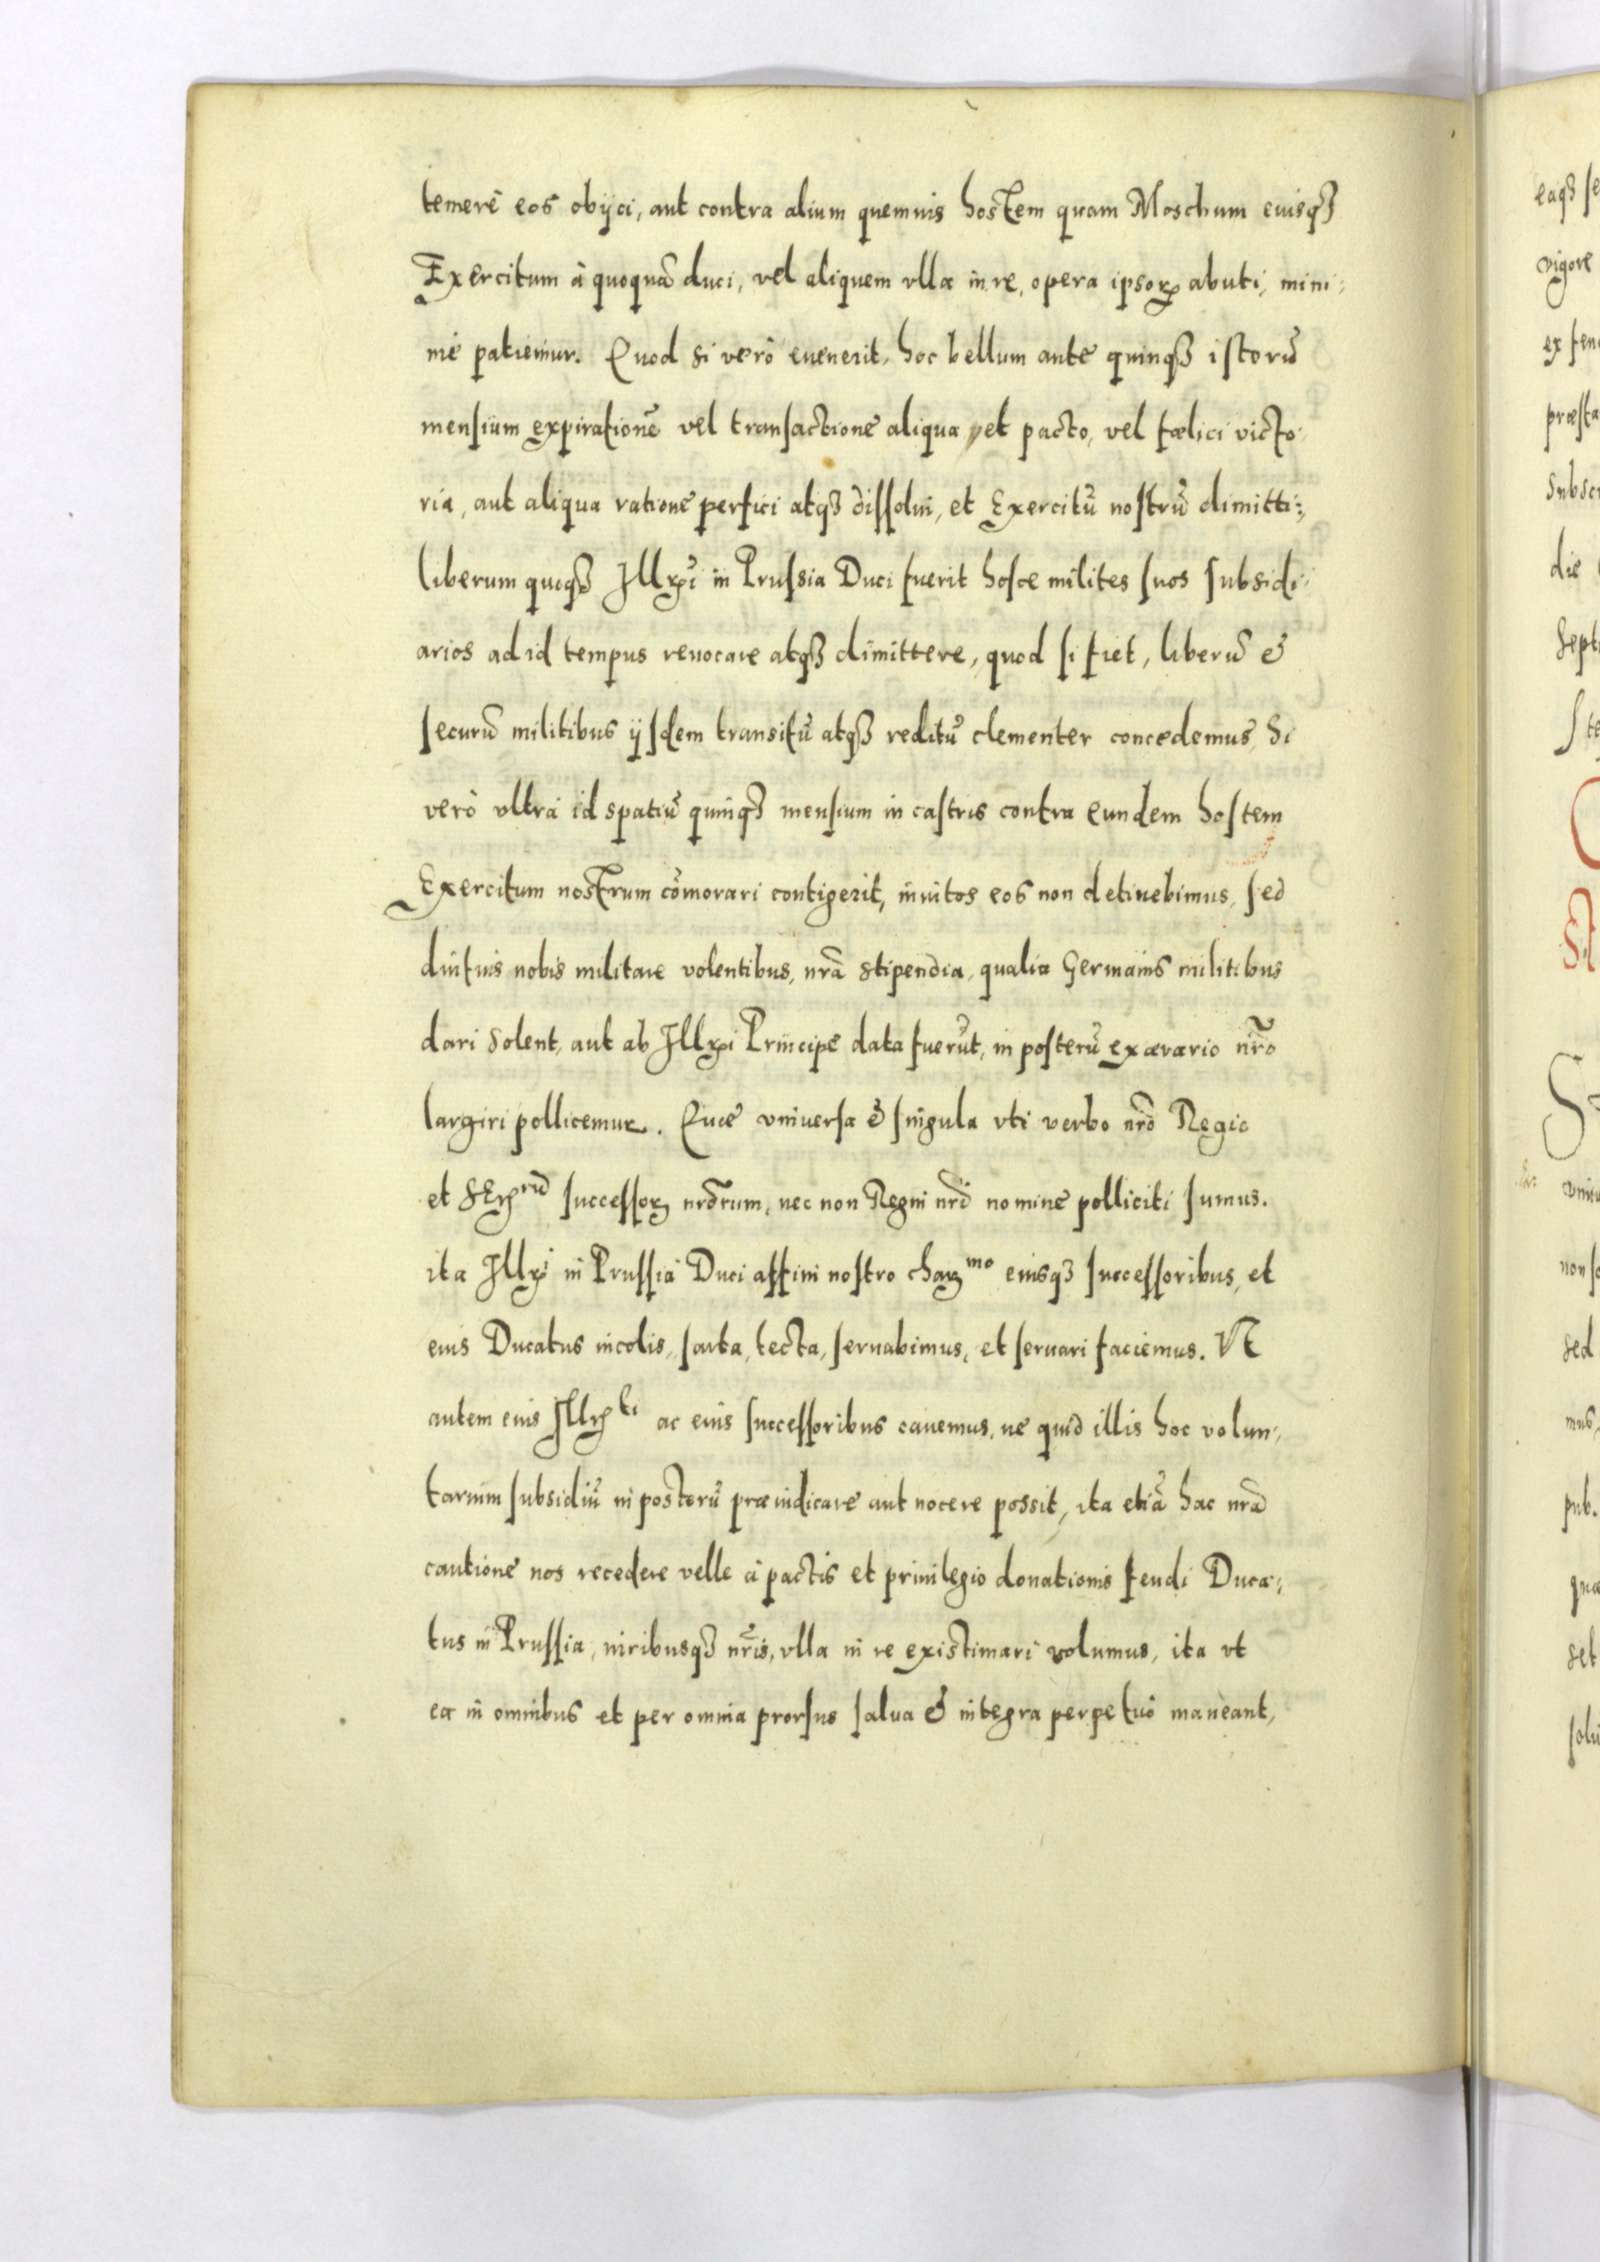 temerè eos obijci, aut contra alium quemuis hostem quam Moschum eiusqȝ
Exercitum à quoquã duci, vel aliquem vlla in re, opera ipsorꝝ abuti, mini-
mè patiemur. Quod si verò euenerit, hoc bellum ante quinqȝ istorũ
mensium expirationẽ vel transactione aliqua, et pacto, vel fœlici victo-
ria, aut aliqua ratione perfici atqȝ dissolui, et Exercitũ nostrũ dimitti:,
liberum quoqȝ Illmi in Prussia Duci fuerit hosce milites suos subsidi-
arios ad id tempus reuocare atqȝ dimittere, quod si fiet, liberũ &
securũ militibus ijsdem transitũ atqȝ reditũ clementer concedemus, Si
verò vltra id spatiũ quinqȝ mensium in castris contra eundem hostem
Exercitum nostrum cõmorari contigerit, inuitos eos non detinebimus, sed
diutius nobis militare volentibus, nrã stipendia, qualia Germanis militibus
dari solent, aut ab Illmi Principe data fuerũt, in posterũ ex ærario nrõ
largiri pollicemur. Quæ vniuersa & singula vti verbo nrõ Regio
et successorꝝ nrõrum, nec non Regni nrĩ nomine polliciti sumus.
ita Illmi in Prussia Duci affini nostro charmo eiusqȝ successoribus, et
eius Ducatus incolis, sarta, tecta, seruabimus, et seruari faciemus. Vt
autem eius Illti ac eius successoribus cauemus, ne quid illis hoc volun-
tarium subsidiũ in posterũ præiudicare aut nocere possit, ita etiã hac nrã
cautione nos recedere velle à pactis et priuilegio donationis feudi Duca-
tus in Prussia, iuribusqȝ nrĩs, vlla in re existimari volumus, ita vt
ea in omnibus et per omnia prorsus salua & integra perpetuò maneant,